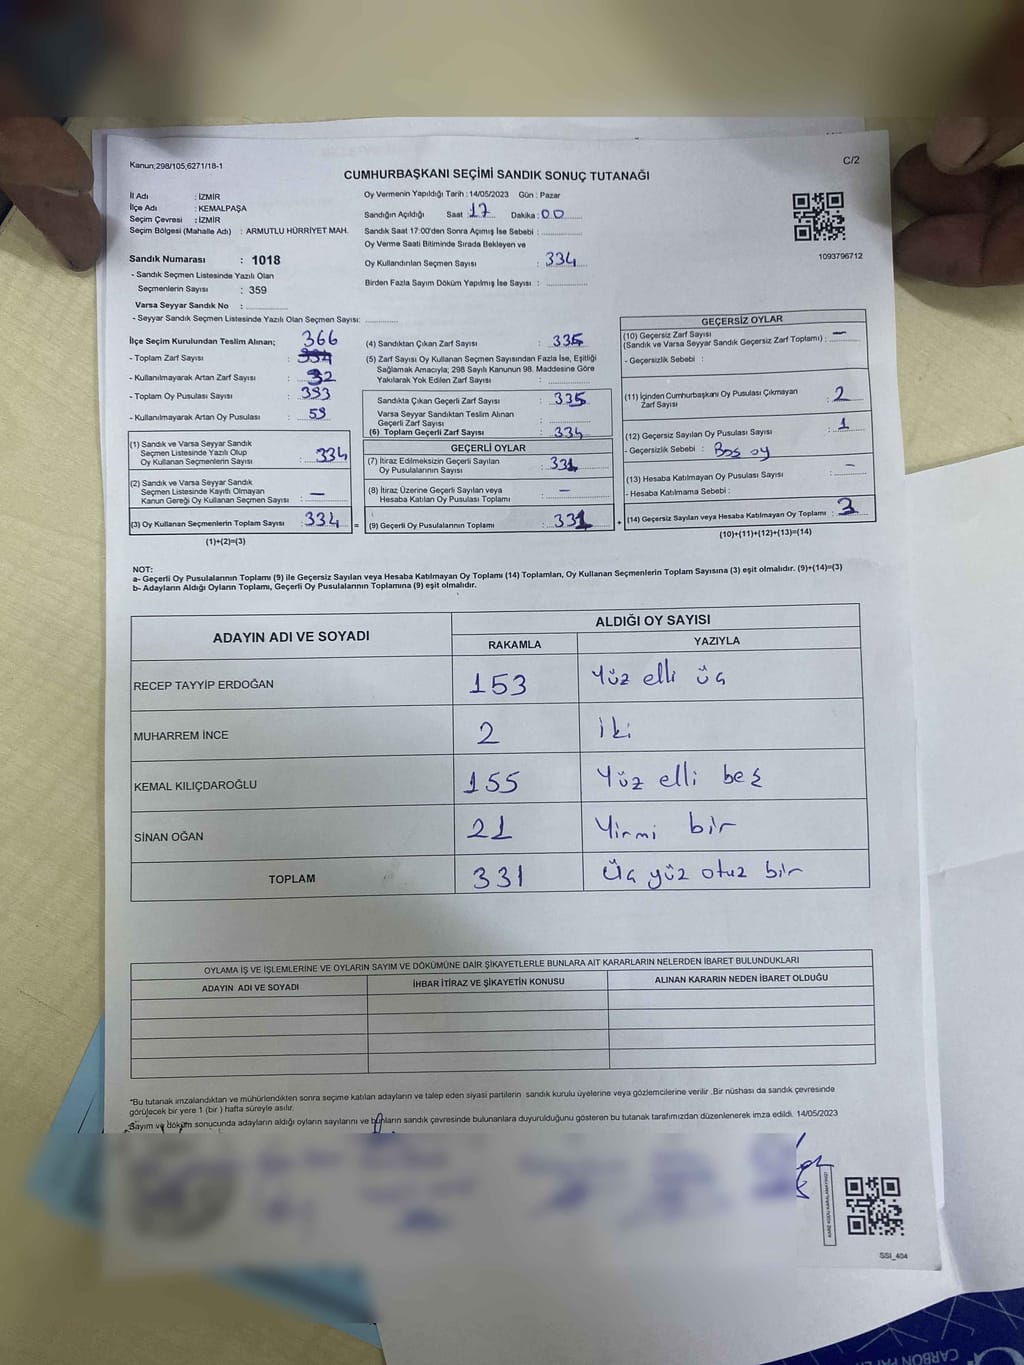 Kanun;298/105;6271/18-1
C/2
CUMHURBAŞKANI SEÇİMİ SANDIK SONUÇ TUTANAĞI
İl Adı : İZMİR
İlçe Adı : KEMALPAŞA
Seçim Çevresi : İZMİR
Seçim Bölgesi (Mahalle Adı) : ARMUTLU HÜRRİYET MAH.
Sandık Numarası : 1018
- Sandık Seçmen Listesinde Yazılı Olan
Seçmenlerin Sayısı : 359
Varsa Seyyar Sandık No :
- Seyyar Sandık Seçmen Listesinde Yazılı Olan Seçmen Sayısı:
Oy Vermenin Yapıldığı Tarih : 14/05/2023 Gün : Pazar
Sandığın Açıldığı Saat : 17 Dakika : 00
Sandık Saat 17:00'den Sonra Açımış İse Sebebi :
Oy Verme Saati Bitiminde Sırada Bekleyen ve
Oy Kullandırılan Seçmen Sayısı : 334
Birden Fazla Sayım Döküm Yapılmış İse Sayısı :
1093796712
İlçe Seçim Kurulundan Teslim Alınan; 366
- Toplam Zarf Sayısı : 334
- Kullanılmayarak Artan Zarf Sayısı : 32
- Toplam Oy Pusulası Sayısı : 393
- Kullanılmayarak Artan Oy Pusulası : 59
(1) Sandık ve Varsa Seyyar Sandık
Seçmen Listesinde Yazılı Olup
Oy Kullanan Seçmenlerin Sayısı : 334
(2) Sandık ve Varsa Seyyar Sandık
Seçmen Listesinde Kayıtlı Olmayan
Kanun Gereği Oy Kullanan Seçmen Sayısı : —
(3) Oy Kullanan Seçmenlerin Toplam Sayısı : 334 =
(1)+(2)=(3)
(4) Sandıktan Çıkan Zarf Sayısı : 335
(5) Zarf Sayısı Oy Kullanan Seçmen Sayısından Fazla İse, Eşitliği
Sağlamak Amacıyla; 298 Sayılı Kanunun 98. Maddesine Göre
Yakılarak Yok Edilen Zarf Sayısı :
Sandıkta Çıkan Geçerli Zarf Sayısı : 335
Varsa Seyyar Sandıktan Teslim Alınan
Geçerli Zarf Sayısı :
(6) Toplam Geçerli Zarf Sayısı : 334
GEÇERLİ OYLAR
(7) İtiraz Edilmeksizin Geçerli Sayılan
Oy Pusulalarının Sayısı : 331
(8) İtiraz Üzerine Geçerli Sayılan veya
Hesaba Katılan Oy Pusulası Toplamı : —
(9) Geçerli Oy Pusulalarının Toplamı : 331 +
GEÇERSİZ OYLAR
(10) Geçersiz Zarf Sayısı
(Sandık ve Varsa Seyyar Sandık Geçersiz Zarf Toplamı) : —
- Geçersizlik Sebebi :
(11) İçinden Cumhurbaşkanı Oy Pusulası Çıkmayan
Zarf Sayısı : 2
(12) Geçersiz Sayılan Oy Pusulası Sayısı : 1
- Geçersizlik Sebebi : Boş oy
(13) Hesaba Katılmayan Oy Pusulası Sayısı : —
- Hesaba Katılmama Sebebi :
(14) Geçersiz Sayılan veya Hesaba Katılmayan Oy Toplamı : 3
(10)+(11)+(12)+(13)=(14)
NOT:
a- Geçerli Oy Pusulalarının Toplamı (9) ile Geçersiz Sayılan veya Hesaba Katılmayan Oy Toplamı (14) Toplamları, Oy Kullanan Seçmenlerin Toplam Sayısına (3) eşit olmalıdır. (9)+(14)=(3)
b- Adayların Aldığı Oyların Toplamı, Geçerli Oy Pusulalarının Toplamına (9) eşit olmalıdır.
ADAYIN ADI VE SOYADI ALDIĞI OY SAYISI
RAKAMLA YAZIYLA
RECEP TAYYİP ERDOĞAN 153 Yüz elli üç
MUHARREM İNCE 2 İki
KEMAL KILIÇDAROĞLU 155 Yüz elli beş
SİNAN OĞAN 21 Yirmi bir
TOPLAM 331 Üç yüz otuz bir
OYLAMA İŞ VE İŞLEMLERİNE VE OYLARIN SAYIM VE DÖKÜMÜNE DAİR ŞİKAYETLERLE BUNLARA AİT KARARLARIN NELERDEN İBARET BULUNDUKLARI
ADAYIN ADI VE SOYADI İHBAR İTİRAZ VE ŞİKAYETİN KONUSU ALINAN KARARIN NEDEN İBARET OLDUĞU
*Bu tutanak imzalandıktan ve mühürlendikten sonra seçime katılan adayların ve talep eden siyasi partilerin sandık kurulu üyelerine veya gözlemcilerine verilir .Bir nüshası da sandık çevresinde
görülecek bir yere 1 (bir ) hafta süreyle asılır.
Sayım ve döküm sonucunda adayların aldığı oyların sayılarını ve bunların sandık çevresinde bulunanlara duyurulduğunu gösteren bu tutanak tarafımızdan düzenlenerek imza edildi. 14/05/2023
KARE KODU KARALAMAYINIZ!
SSI_404